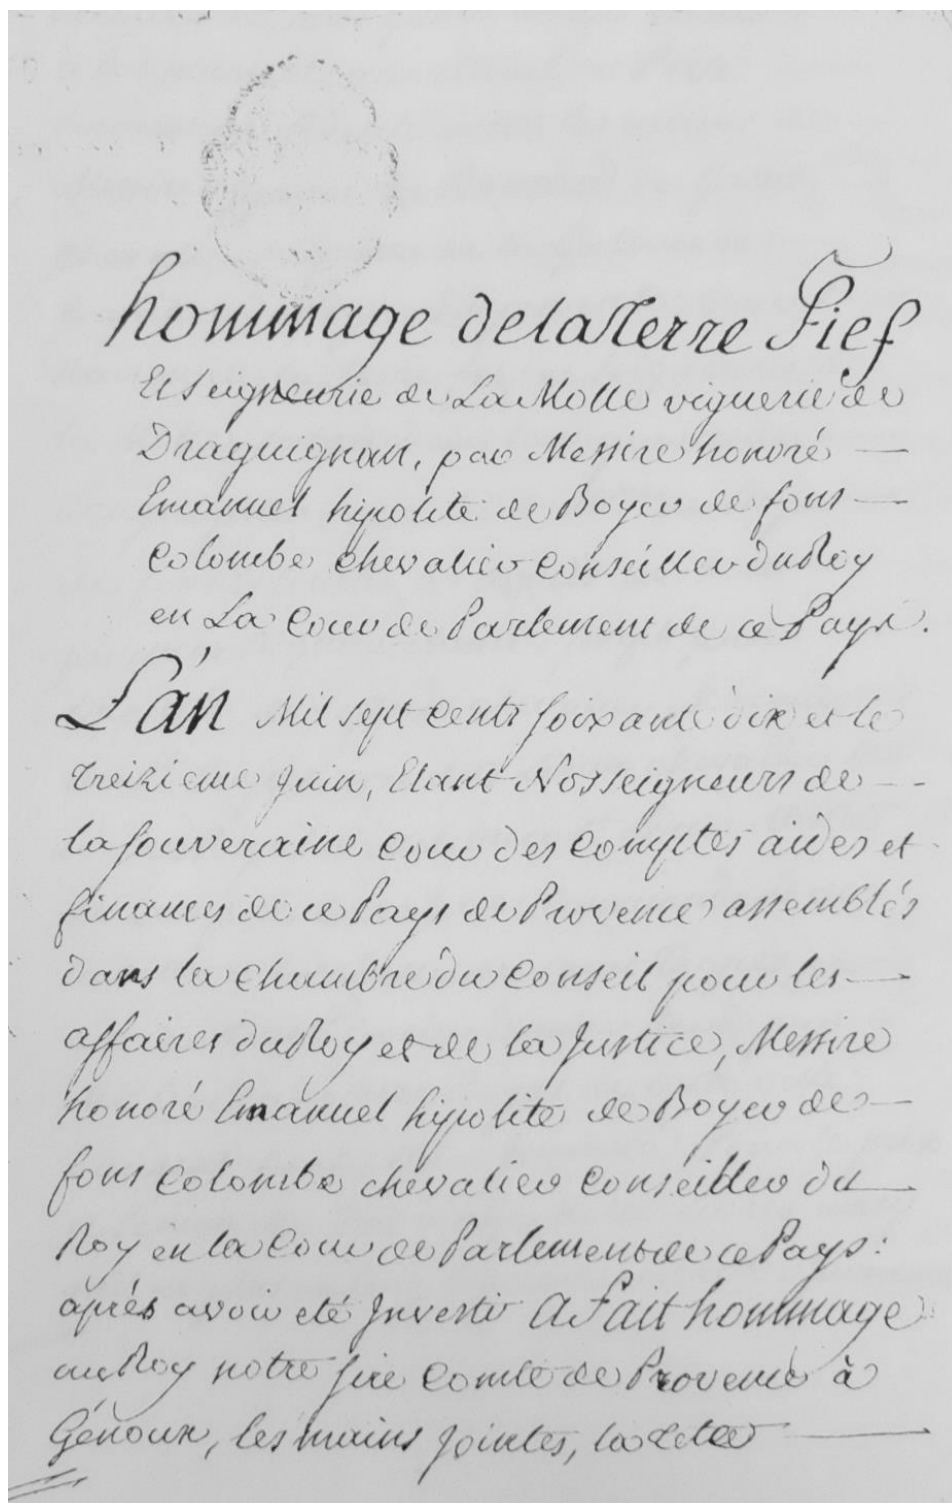 hommage de la Terre Fief
Et seigneurie de La Molle viguerie de
Draguignan, par Messire honoré
Emanuel hipolite de Boyer de fons
Colombe chevalier Conseiller du Roy
en La Cour de Parlement de ce Pays.
L'an Mil sept cents soixante dix et le
treizieme Juin, Etant Nosseigneurs de
la souveraine Cour des Comptes aides et
finances de ce Pays de Provence assemblés
dans la Chambre du Conseil pour les
affaires du Roy et de la Justice, Messire
honoré Emanuel hipolite de Boyer de
fons Colombe chevalier Conseiller du
Roy en la Cour de Parlement de ce Pays:
aprés avoir eté Investi A Fait hommage
au Roy notre sire Comte de Provence à
Génoux, les mains Jointes, la tete